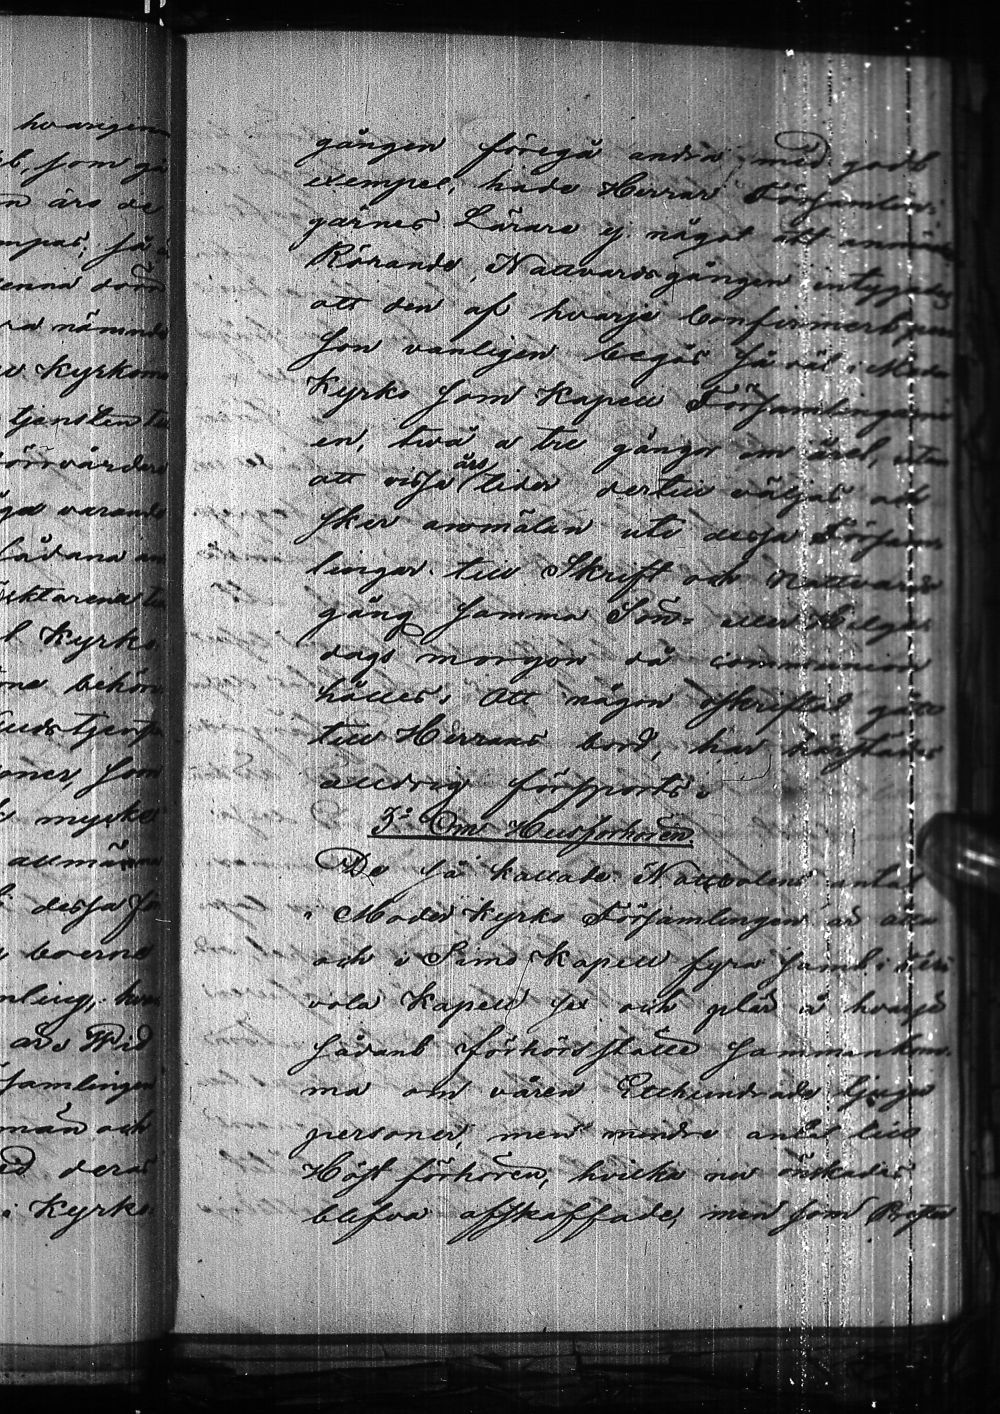 hvarigen
som gå
äro de
så
denna dom
nämnde
Kyrkom
tjensten
varand
sådana
Kyrko
behör
som
mycke
allmän
dessa
boerne
samlingen
man och
deras
i Kyrko
gången föregå andra med godt
exempel, hade Herrar Församlin-
garnes Lärare ej något att anmärka
Rörande Nattvardsgången intygades
att den af hvarje Confirmerb per-
son vanligen begås så väl i Moder
Kyrko som Kapell Församlingarne
en, två a tre gånger om året, utan
att vissa års tider dertill väljas och
sker anmälan uti dessa Försam-
lingar till Skrift och Nattvards
gång samma Sön- eller Helge
dags morgon då communion
hålles. Att någon oskriftad gått
till Herrans bord, har härstädes
alldrig försports.
3o Om Husförhören.
De så kallade Nattvolens antal
i Moder Kyrko Församlingen är åtta
och i Simo Kapell fyra samt i
vola Kapell sex och plär å hvarje
sådant förhörs ställe samman kom-
ma om våren Etthundrade tjugu
personer, men mindre antal till
Höst förhören, hvilka nu önskades
blifva afskaffade, men som